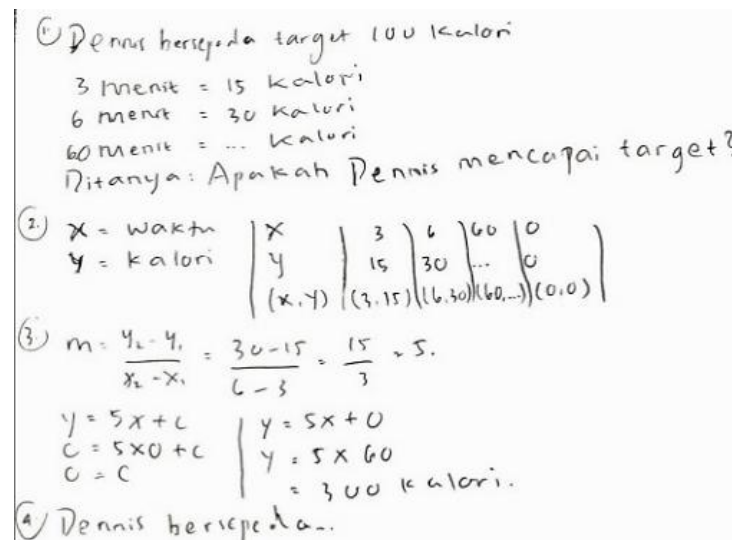 1. Dennis bersepeda target 100 Kalori
3 menit = 15 Kalori
6 menit = 30 Kalori
60 menit = ... Kalori
Ditanya: Apakah Dennis mencapai target?
2. x = waktu | x | 3 | 6 | 60 | 0
y = kalori | y | 15 | 30 | ... | 0
(x,y) | (3,15) | (6,30) | (60,...) | (0,0) |
3. m = y₂ - y₁ / x₂ - x₁ = 30-15 / 6-3 = 15 / 3 = 5.
y = 5x + c | y = 5x + 0
0 = 5x0 + c | y = 5 x 60
0 = c | = 300 kalori.
4. Dennis bersepeda...